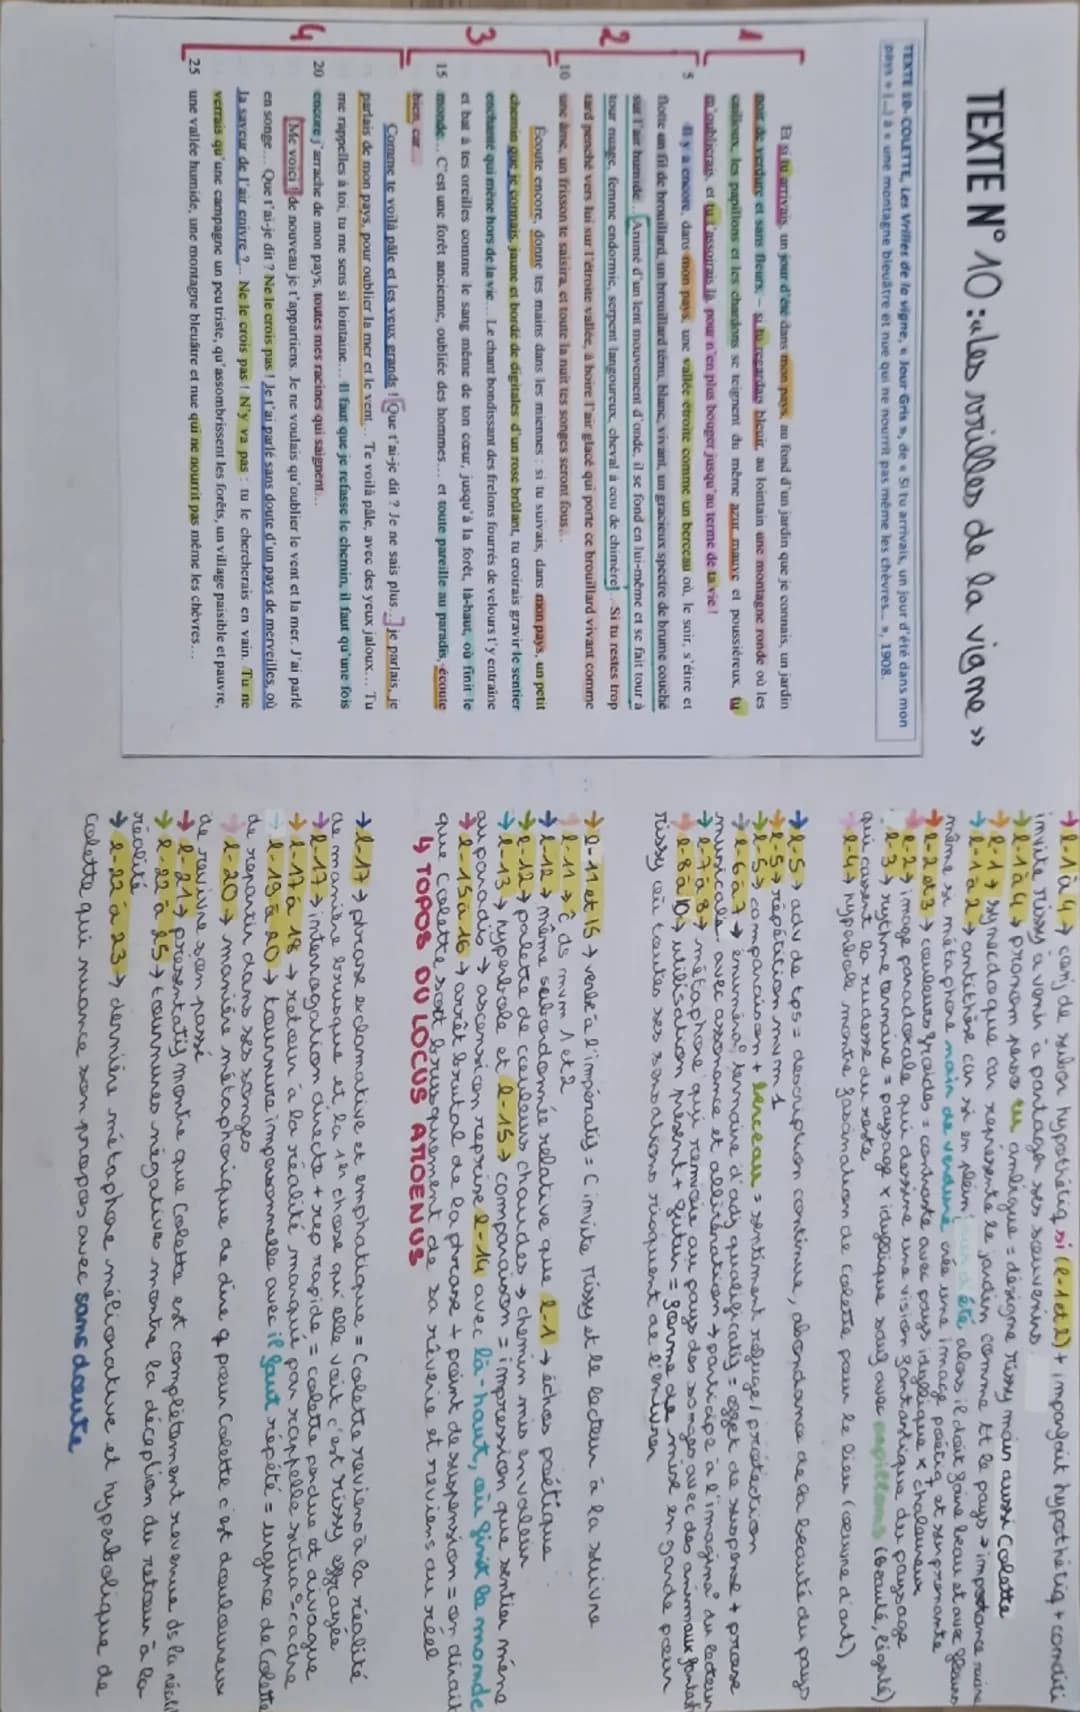 TEXTE N° 10 : « Les vrilles de la vigne »
TEXTE 10- COLETTE, Les Vrilles de la vigne, « Jour Gris », de « Si tu arrivais, un jour d'été dans mon
pays » [...] à « une montagne bleuâtre et nue qui ne nourrit pas même les chèvres... », 1908.
1
Et si tu arrivais, un jour d'été dans mon pays, au fond d'un jardin que je connais, un jardin
noir de verdure et sans fleurs, – si tu regardais bleuir, au lointain une montagne ronde où les
cailloux, les papillons et les chardons se teignent du même azur mauve et poussiéreux, tu
m'oublierais, et tu t'assoirais là, pour n'en plus bouger jusqu'au terme de ta vie !
2
5 Il y a encore, dans mon pays, une vallée étroite comme un berceau où, le soir, s'étire et
flotte un fil de brouillard, un brouillard ténu, blanc, vivant, un gracieux spectre de brume couché
sur l'air humide... [Animé d'un lent mouvement d'onde, il se fond en lui-même et se fait tour à
tour nuage, femme endormie, serpent langoureux, cheval à cou de chimère]... Si tu restes trop
tard penché vers lui sur l'étroite vallée, à boire l'air glacé qui porte ce brouillard vivant comme
10 une âme, un frisson te saisira, et toute la nuit tes songes seront fous...
3
Écoute encore, donne tes mains dans les miennes : si tu suivais, dans mon pays, un petit
chemin que je connais, jaune et bordé de digitales d'un rose brûlant, tu croirais gravir le sentier
enchanté qui mène hors de la vie... Le chant bondissant des frelons fourrés de velours t'y entraîne
et bat à tes oreilles comme le sang même de ton cœur, jusqu'à la forêt, là-haut, où finit le
15 monde... C'est une forêt ancienne, oubliée des hommes... et toute pareille au paradis, écoute
bien, car...
4
Comme te voilà pâle et les yeux grands ! [Que t'ai-je dit ? Je ne sais plus...] je parlais, je
parlais de mon pays, pour oublier la mer et le vent... Te voilà pâle, avec des yeux jaloux... Tu
me rappelles à toi, tu me sens si lointaine... Il faut que je refasse le chemin, il faut qu'une fois
20 encore j'arrache de mon pays, toutes mes racines qui saignent...
[Me voici !] de nouveau je t'appartiens. Je ne voulais qu'oublier le vent et la mer. J'ai parlé
en songe... Que t'ai-je dit ? Ne le crois pas ! Je t'ai parlé sans doute d'un pays de merveilles, où
la saveur de l'air enivre ?... Ne le crois pas ! N'y va pas : tu le chercherais en vain. Tu ne
verrais qu'une campagne un peu triste, qu'assombrissent les forêts, un village paisible et pauvre,
25 une vallée humide, une montagne bleuâtre et nue qui ne nourrit pas même les chèvres...
→ l-1 à 4 → conj de subor hypothétiq si (l-1 et 2) + imparfait hypothétiq + conditi
invite Missy a venir à partager ses souvenirs
→ l-1 à 4 → pronom perso tu ambigue = désigne Missy mais aussi Colette
→ l-1 → synecdoque car représente le jardin comme tt le pays → importance
→ l-1 à 2 → antithèse car si en plein jour d'été alors il doit faire beau et avoir fleurs
même si métaphore noir de verdure crée une image poétiq et surprenante
→ l-2 et 3 → couleurs froides = contraste avec pays idyllique × chaleureux
→ l-2 → image paradoxale qui dessine une vision fantastique du paysage
→ l-3 → rythme ternaire = paysage × idyllique sauf avec papillons (beauté, légèreté)
qui cassent la rudesse du reste
→ l-4 → hyperbole montre fascination de Colette pour le lieu (œuvre d'art)
→ l-5 → adv de tps = description continue, abondance de la beauté du pays
→ l-5 → répétition mvm 1
→ l-5 → comparaison + berceau = sentiment refuge / protection
→ l-6 à 7 → énuméra° ternaire d'adj qualificatifs = effet de suspense + prose
musicale avec assonance et allitération → participe à l'imagina° du lecteur
→ l-7 à 8 → métaphore qui renvoie au pays des songes avec des animaux fantast
→ l-8 à 10 → utilisation présent + futur = forme de mise en garde pour
Missy où toutes ses sensations risquent de l'enivrer
→ l-11 et 15 → verbe à l'impératif = C invite Missy et le lecteur à la suivre
→ l-11 → C ds mvm 1 et 2
→ l-12 → même subordonnée relative que l-1 → échos poétique
→ l-12 → palette de couleurs chaudes → chemin mis en valeur
→ l-13 → hyperbole et l-15 → comparaison = impression que sentier mène
au paradis → ascension reprise l-14 avec là-haut, où finit le monde
→ l-15 à 16 → arrêt brutal de la phrase + point de suspension = on dirait
que Colette sort brusquement de sa rêverie et reviens au réel
↳ TOPOS DU LOCUS AMOENUS
→ l-17 → phrase exclamative et emphatique = Colette reviens à la réalité
de manière brusque et la 1er chose qui elle voit c'est Missy effrayée
→ l-17 → interrogation directe + rep rapide = Colette perdue et divague
→ l-17 à 18 → retour à la réalité marqué par rappelle situa° cadre
→ l-19 à 20 → tournure impersonnelle avec il faut répété = urgence de Colette
de repartir dans ses songes
→ l-20 → manière métaphorique de dire q pour Colette c'est douloureux
de revivre son passé
→ l-21 → présentatif montre que Colette est complètement revenue ds la réalit
→ l-22 à 25 → tournures négatives montre la déception du retour à la
réalité
→ l-22 à 23 → dernière métaphore méliorative et hyperbolique de
Colette qui nuance son propos avec sans doute